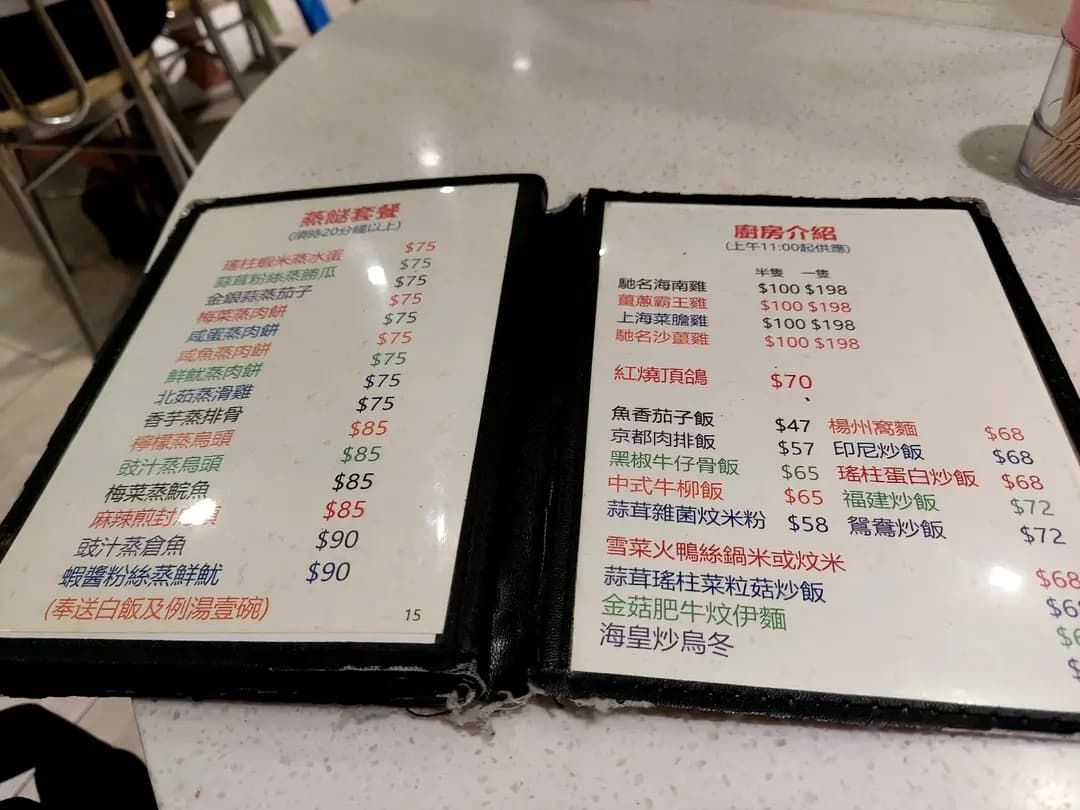 蒸餸套餐
(需時20分鐘以上)
瑤柱蝦米蒸水蛋 $75
蒜茸粉絲蒸勝瓜 $75
金銀蒜蒸茄子 $75
梅菜蒸肉餅 $75
咸蛋蒸肉餅 $75
咸魚蒸肉餅 $75
鮮魷蒸肉餅 $75
北菇蒸滑雞 $75
香芋蒸排骨 $75
檸檬蒸烏頭 $85
豉汁蒸烏頭 $85
梅菜蒸鯇魚 $85
麻辣煎封 $85
豉汁蒸倉魚 $90
蝦醬粉絲蒸鮮魷 $90
(奉送白飯及例湯壹碗)
15
廚房介紹
(上午11:00起供應)
半隻 一隻
馳名海南雞 $100 $198
薑蔥霸王雞 $100 $198
上海菜膽雞 $100 $198
馳名沙薑雞 $100 $198
紅燒頂鴿 $70
魚香茄子飯 $47 楊州窩麵 $68
京都肉排飯 $57 印尼炒飯 $68
黑椒牛仔骨飯 $65 瑤柱蛋白炒飯 $68
中式牛柳飯 $65 福建炒飯 $72
蒜茸雜菌炆米粉 $58 鴛鴦炒飯 $72
雪菜火鴨絲鍋米或炆米 $68
蒜茸瑤柱菜粒菇炒飯
金菇肥牛炆伊麵
海皇炒烏冬